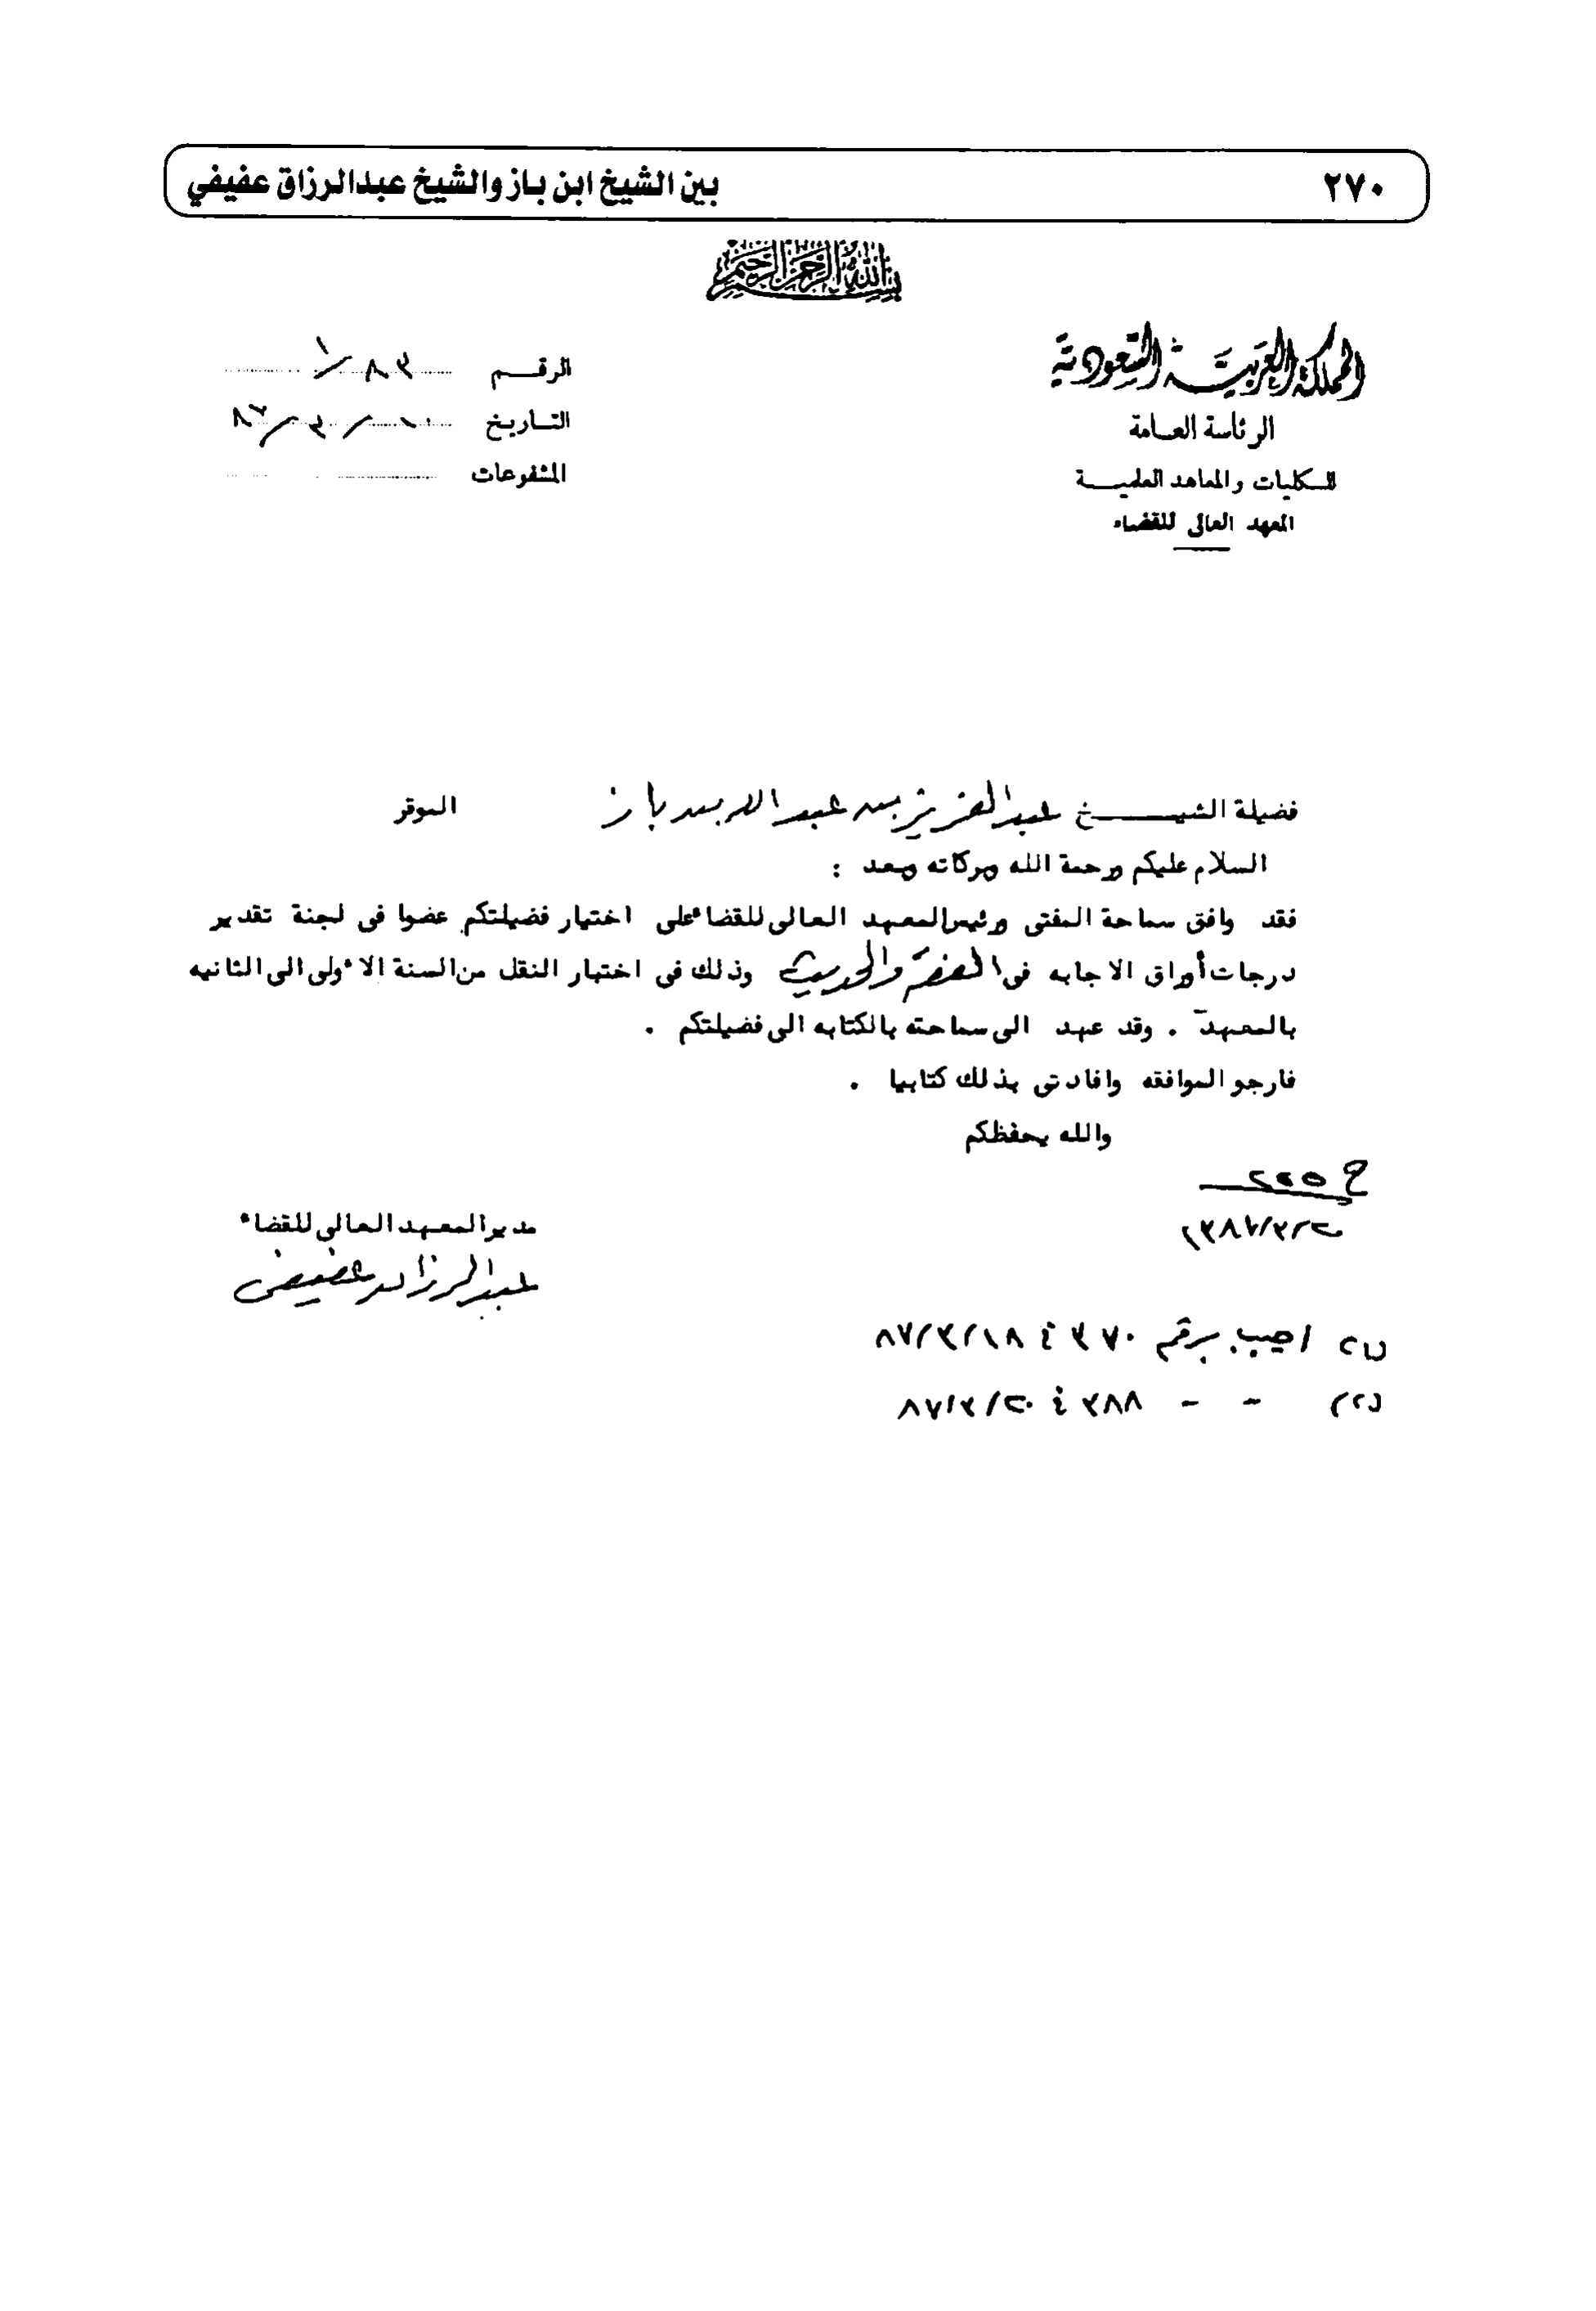 ٢٧٠
بين الشيخ ابن باز والشيخ عبدالرزاق عفيفي
بسم الله الرحمن الرحيم
المملكة العربية السعودية
الرئاسة العامة
للكليات والمعاهد العلمية
المعهد العالى للقضاء
الرقم ٨٣/١
التاريخ ٨٧
المشفوعات
فضيلة الشيخ عبد العزيز بن عبد الله بن باز الموقر
السلام عليكم ورحمة الله وبركاته وبعد :
فقد وافق سماحة المفتى ورئيس المعهد العالى للقضاء على اختيار فضيلتكم عضوا فى لجنة تقدير
درجات أوراق الاجابه فى الفقه والحديث وذلك فى اختبار النقل من السنة الاولى الى الثانيه
بالمعهد . وقد عهد الى سماحته بالكتابه الى فضيلتكم .
فارجو الموافقه وافادتى بذلك كتابيا .
والله يحفظكم
مدير المعهد العالى للقضاء
عبد الرزاق عفيفى
١٣٨٧/٣/٢٠
اجيب برقم ٣٧٠ فى ٨٧/٣/١٨
- - ٣٨٨ فى ٨٧/٣/٢٠